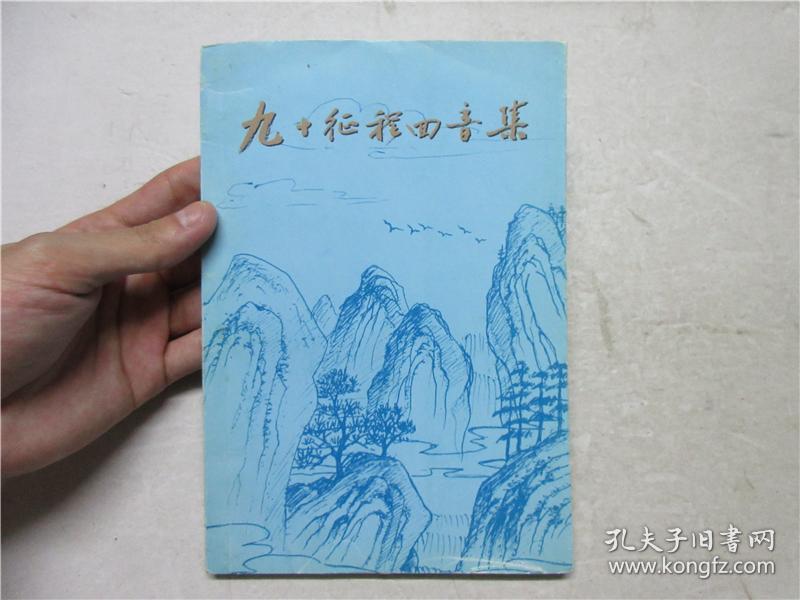 九十征程回音集
孔夫子旧书网
www.kongfz.com